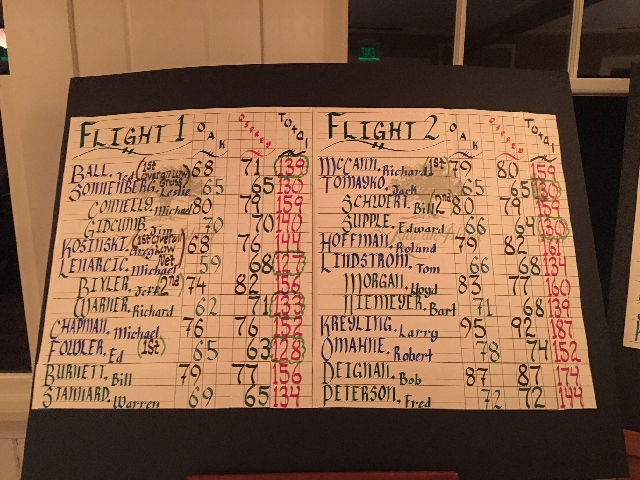 FLIGHT 1 OAK TOTAL
BALL, Ted (1st Overall Low Gross) 68 71 139
SONNENBERG, Leslie 65 65 130
CONNELLY, Michael 80 79 159
GIDCUMB, Jim 70 70 140
KOSINSKI, (1st Overall Low Net) 68 76 144
LENARCIC, Michael 59 68 127
BIXLER, Jeff (2nd) 74 82 156
WARNER, Richard 62 71 133
CHAPMAN, Michael 76 76 152
FOWLER, Ed (1st) 65 63 128
BURNETT, Bill 79 77 156
STANNARD, Warren 69 65 134
FLIGHT 2 OAK TOTAL
MCCANN, Richard (1st) 79 80 159
TOMAYKO, Jack 65 65 130
SCHVERT, Bill 2nd 80 79 159
SUPPLE, Edward 66 64 130
HOFFMAN, Roland 79 82 161
LINDSTROM, Tom 66 68 134
MORGAN, Lloyd 83 77 160
NIEMEYER, Bart 71 68 139
KREYLING, Larry 95 92 187
OMAHNE, Robert 78 74 152
DEIGNAN, Bob 87 87 174
PETERSON, Fred 72 72 144